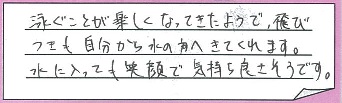 泳ぐことが楽しくなってきたようで、飛び
つきも自分から水の方へきてくれます。
水に入っても笑顔で気持ち良さそうです。